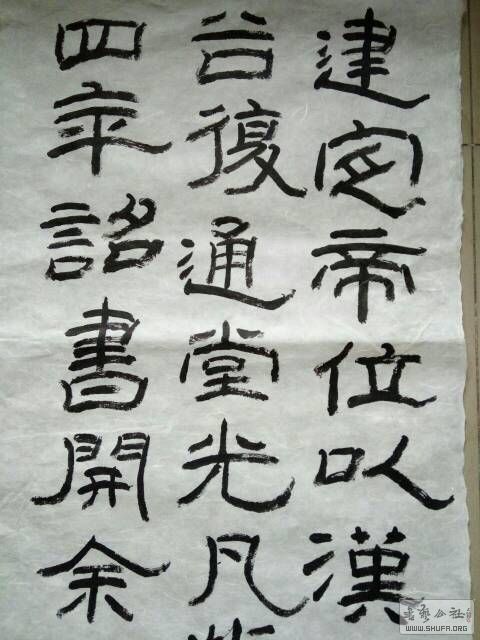 建定帝位以漢
谷復通堂光凡
四年詔書開余
WWW.SHUFA.ORG